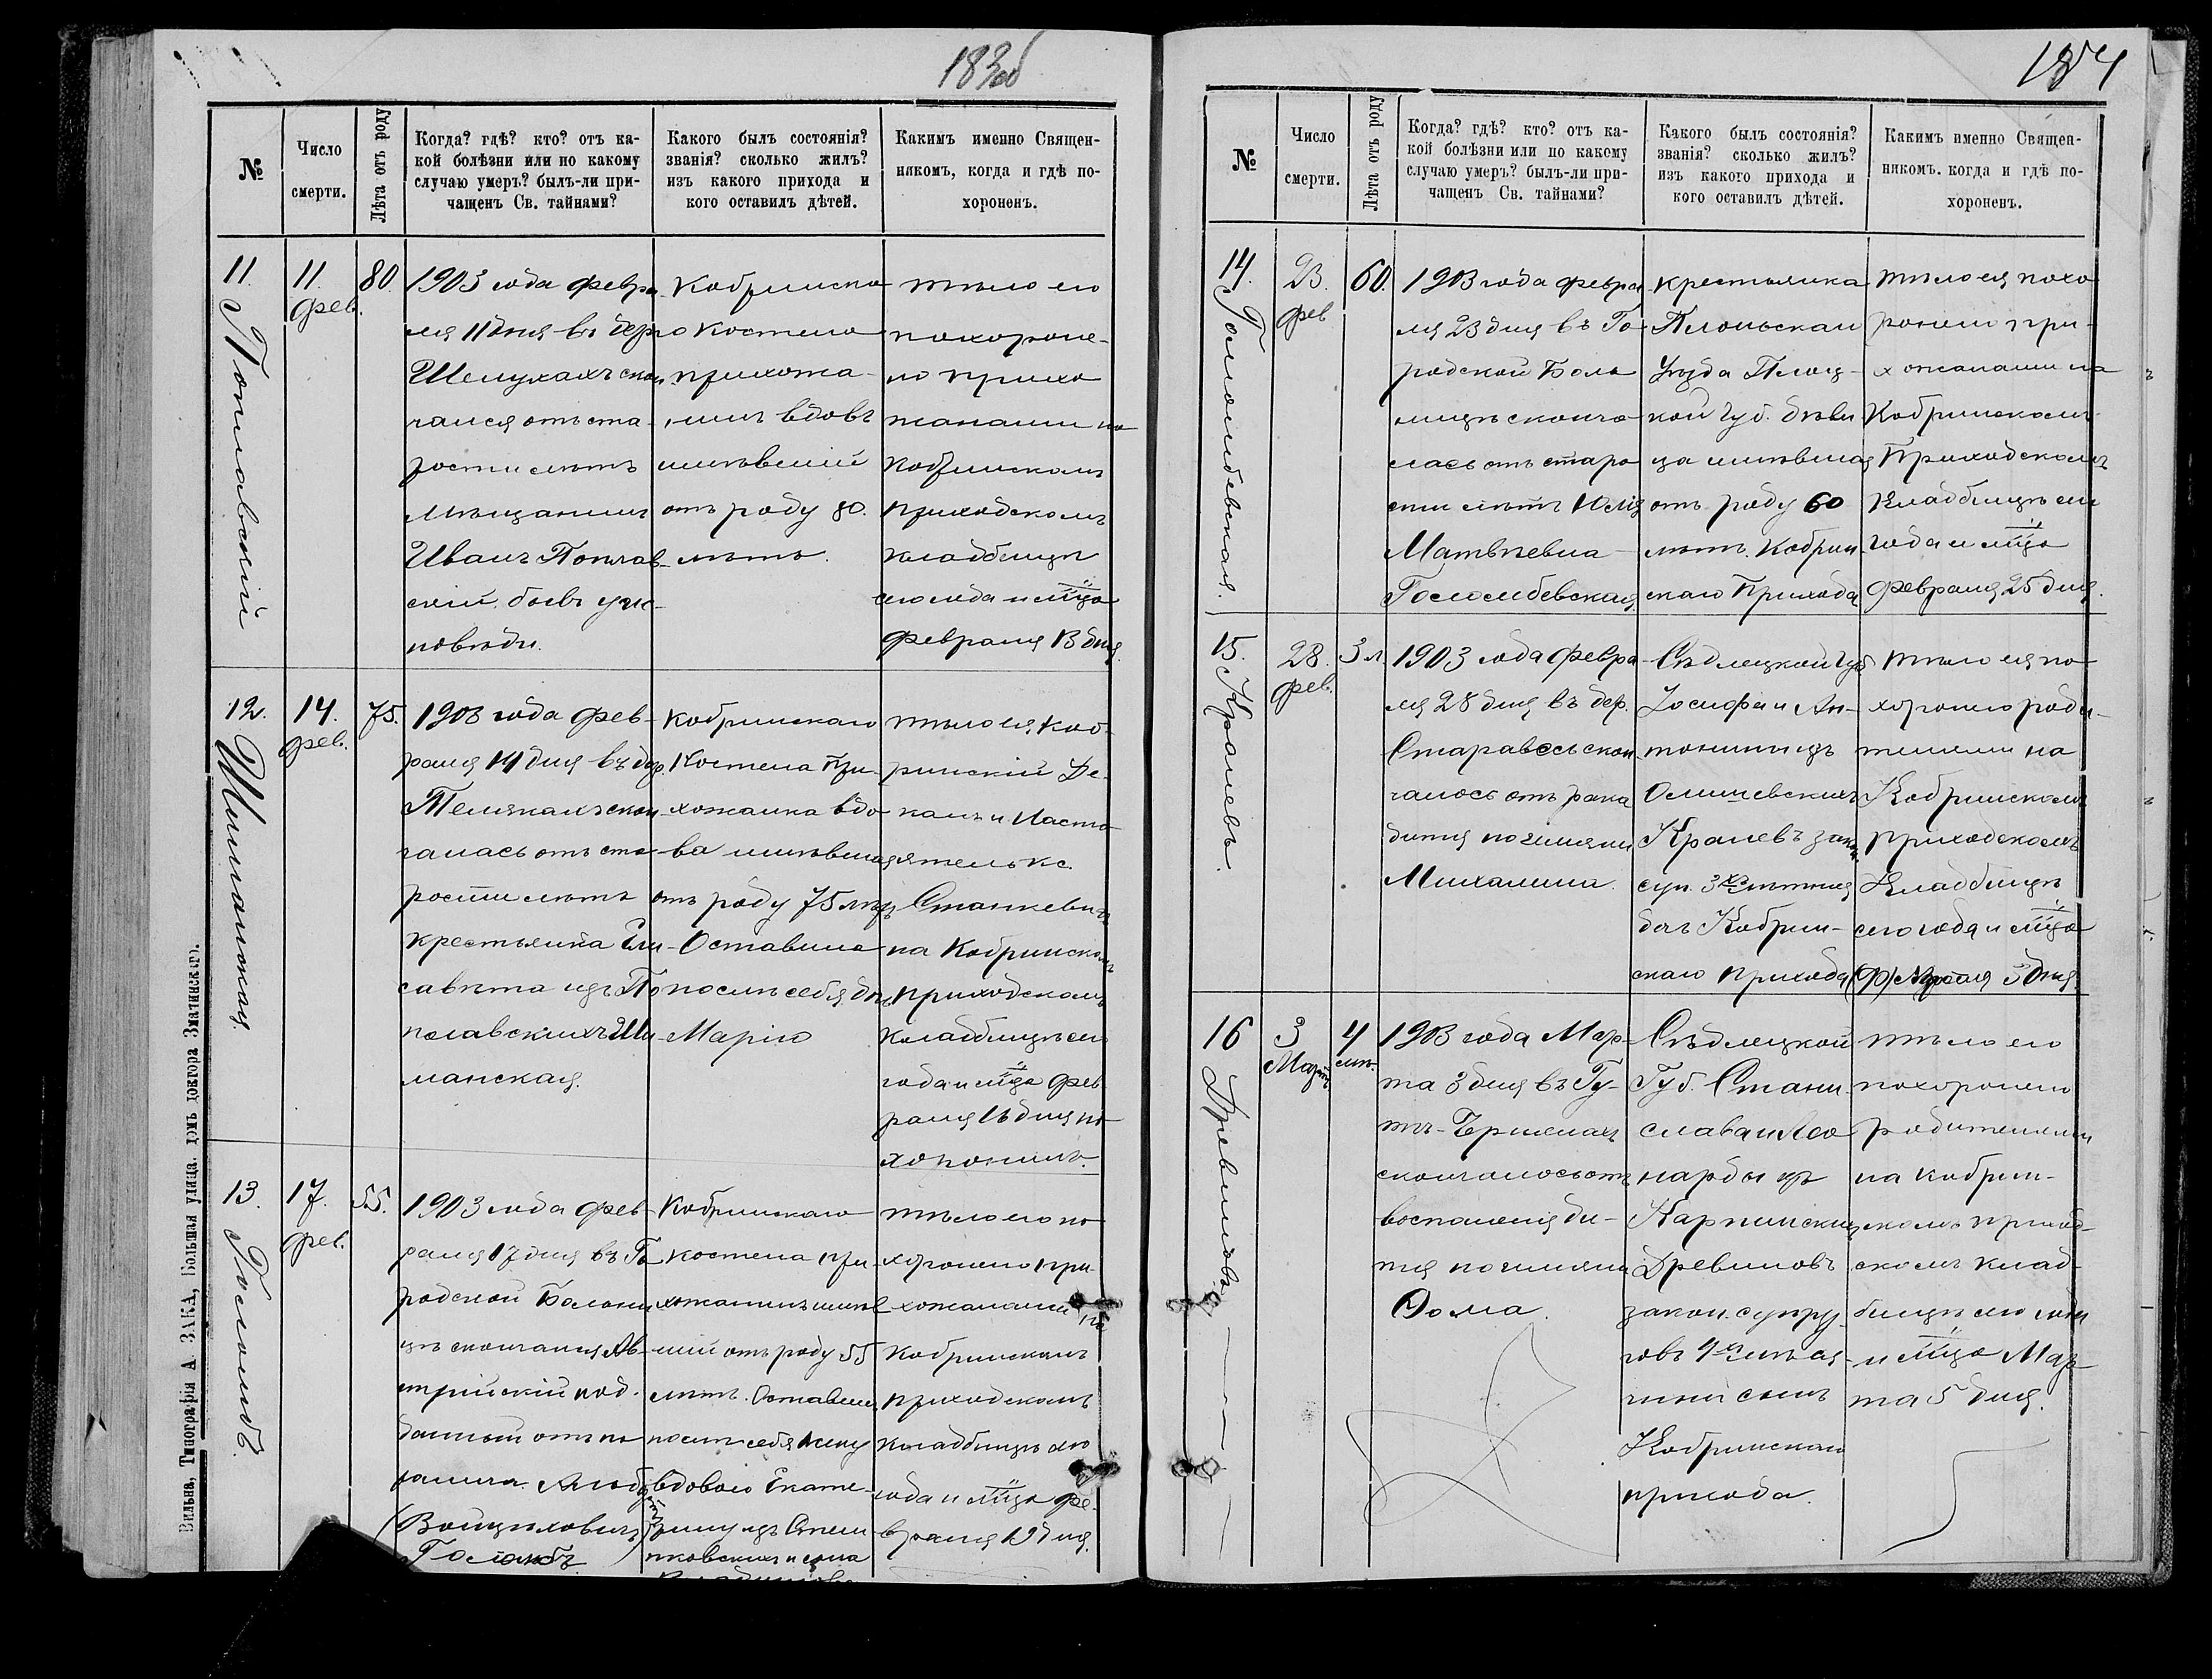 183об
№
Число
смерти.
Лѣта отъ роду
Когда? гдѣ? кто? отъ ка-
кой болѣзни или по какому
случаю умеръ? былъ-ли при-
чащенъ Св. тайнами?
Какого былъ состоянія?
званія? сколько жилъ?
изъ какого прихода и
кого оставилъ дѣтей.
Какимъ именно Священ-
никомъ, когда и гдѣ по-
хороненъ.
11.
Поплавскій
11.
фев.
80
1903 года февра
ля 11 дня въ дер
Шелухахъ скон
чался отъ ста-
рости лѣтъ
Мѣщанинъ
Иванъ Поплав-
скій. бывъ у ис-
повѣди.
Кобринска
го Костела
прихожа-
нинъ вдовъ
имѣвшій
отъ роду 80.
лѣтъ.
тѣло его
похороне-
но прихо
жанами на
Кобринскомъ
приходскомъ
кладбищѣ
сего года и мѣца
Февраля 13 дня.
12.
Шиманская.
14.
фев.
75.
1903 года фев-
раля 14 дня въ дер
скон-
чалась отъ ста-
рости лѣтъ
крестьянка Ели-
савета изъ По
плавскихъ Ши-
манская.
Кобринскаго
Костела При-
хожанка вдо-
ва имѣвшая
отъ роду 75 лѣтъ
Оставила
послѣ себя доч.
Марію
тѣло ея, Коб-
ринскій Де-
канъ и Насто-
ятель кс.
Станкевичъ
на Кобринскомъ
приходскомъ
кладбищѣ сего
года и мѣца фев
раля 16 дня по-
хоронилъ.
13.
Голомбъ.
17.
фев.
55.
1903 года фев-
раля 17 дня въ Го
родской Больни
цѣ скончался Ав-
стрійскій под-
данный отъ па
ралича
Войцеховичъ
Голомбъ
Кобринскаго
костела при-
хожанинъ имѣв
шій отъ роду 55
лѣтъ. Оставилъ
послѣ себя жену
вдовою Екате-
рину изъ
и сына
тѣло его по
хоронено при-
хожанами
на
Кобринскомъ
приходскомъ
кладбищѣ сего
года и мѣца фе-
враля 19 дня.
Вильна, Типографія А. ЗАКА, Большая улица. домъ доктора Зматинскаго.
184
№
Число
смерти.
Лѣта отъ роду
Когда? гдѣ? кто? отъ ка-
кой болѣзни или по какому
случаю умеръ? былъ-ли при-
чащенъ Св. тайнами?
Какого былъ состоянія?
званія? сколько жилъ?
изъ какого прихода и
кого оставилъ дѣтей.
Какимъ именно Священ-
никомъ. когда и гдѣ по-
хороненъ.
14.
Голомбевская.
23.
фев
60.
1903 года февра
ля 23 дня въ Го-
родской Боль
ницѣ сконча
лась отъ старо
сти лѣтъ Юлія
Матвѣевна
Голомбевская
крестьянка
Плоньскаго
Уѣзда Плоц-
кой губ. дѣви
ца имѣвшая
отъ роду 60
лѣтъ. Кобрин
скаго Прихода
тѣло ея похо
ронено при-
хожанами на
Кобринскомъ
Приходскомъ
Кладбищѣ сего
года и мѣца
Февраля 25 дня.
15.
Кралевъ.
28.
фев.
3 л.
1903 года Февра
ля 28 дня въ дер.
скон
чалось отъ рака
дитя по имени
Михалина.
Сѣдлецкой губ
Іосифа и Ан-
тонины изъ
Кралевъ закон.
суп. 3хъ лѣтняя
дочь Кобрин-
скаго прихода
тѣло ея по-
хоронено роди-
телями на
Кобринскомъ
приходскомъ
Кладбищѣ
сего года и мѣца
3 дня.
16
Древиловъ
3
Март
4
лѣт.
1903 года Мар-
та 3 дня въ Гу-
скончалось отъ
воспаленія ди-
тя по имени
Ѳома.
Сѣдлецкой
Губ. Стани
слава и Лео
нарды изъ
Карпинскихъ
Древиловъ
закон. супру
говъ 4хъ лѣт-
ній сынъ
Кобринскаго
прихода.
тѣло его
похоронено
родителями
на Кобрин-
скомъ приход-
скомъ клад-
бищѣ сего года
и мѣца Мар-
та 5 дня.